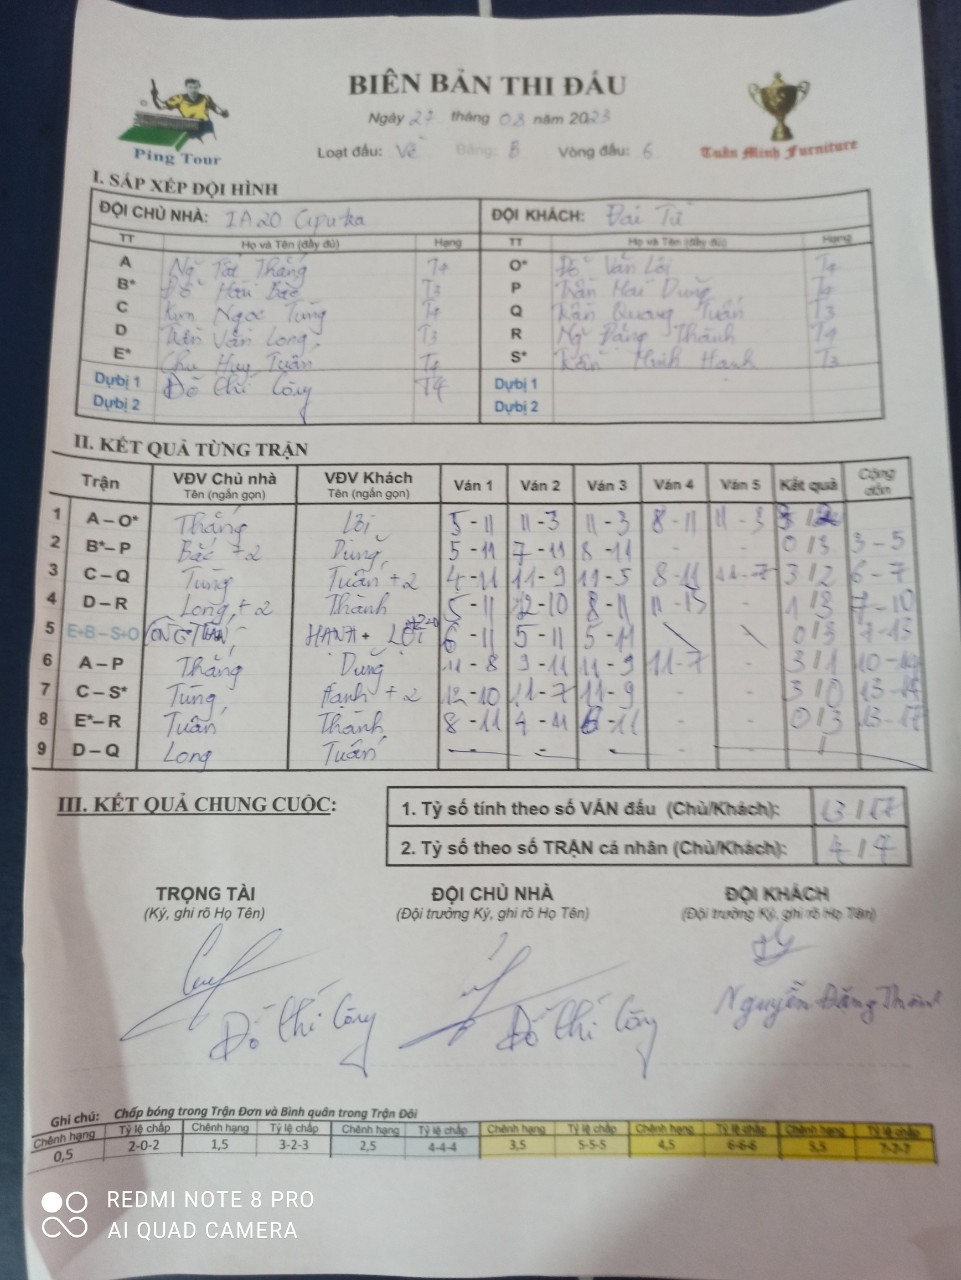 BIÊN BẢN THI ĐẤU
Ping Tour
Tuấn Minh Furniture
Ngày 27 tháng 08 năm 2023
Loạt đấu: Về Bảng: B Vòng đấu: 6
I. SẮP XẾP ĐỘI HÌNH
ĐỘI CHỦ NHÀ: IA20 Ciputra ĐỘI KHÁCH: Đại Từ
TT Họ và Tên (đầy đủ) Hạng TT Họ và Tên (đầy đủ) Hạng
A Ng~ Tất Thắng T4 O* Đỗ Văn Lôi T4
B* Đỗ Hữu Bắc T3 P Trần Mai Dũng T4
C Kim Ngọc Tùng T4 Q Trần Quang Tuấn T3
D Trần Văn Long T3 R Ng~ Đăng Thành T4
E* Chu Huy Tuấn T4 S* Trần Minh Hạnh T3
Dự bị 1 Đỗ Chí Công T4 Dự bị 1
Dự bị 2 Dự bị 2
II. KẾT QUẢ TỪNG TRẬN
Trận VĐV Chủ nhà Tên (ngắn gọn) VĐV Khách Tên (ngắn gọn) Ván 1 Ván 2 Ván 3 Ván 4 Ván 5 Kết quả Cộng dồn
1 A – O* Thắng Lôi 5-11 11-3 11-3 8-11 11-3 3/2
2 B*– P Bắc +2 Dũng 5-11 7-11 8-11 - - 0/3 3-5
3 C – Q Tùng Tuấn +2 4-11 11-9 11-5 8-11 11-7 3/2 6-7
4 D – R Long +2 Thành 5-11 12-10 8-11 11-13 - 1/3 7-10
5 E+B – S+O HẠNH + LÔI 6-11 5-11 5-11 0/3 7-13
6 A – P Thắng Dũng 11-8 9-11 11-9 11-7 - 3/1 10-14
7 C – S* Tùng Hạnh +2 12-10 11-7 11-9 - - 3/0 13-14
8 E*– R Tuấn Thành 8-11 4-11 6-11 - - 0/3 13-17
9 D – Q Long Tuấn - - - - - /
III. KẾT QUẢ CHUNG CUỘC:
1. Tỷ số tính theo số VÁN đấu (Chủ/Khách): 13/17
2. Tỷ số theo số TRẬN cá nhân (Chủ/Khách): 4/4
TRỌNG TÀI ĐỘI CHỦ NHÀ ĐỘI KHÁCH
(Ký, ghi rõ Họ Tên) (Đội trưởng Ký, ghi rõ Họ Tên) (Đội trưởng Ký, ghi rõ Họ Tên)
Đỗ Chí Công Đỗ Chí Công Nguyễn Đăng Thành
Ghi chú: Chấp bóng trong Trận Đơn và Bình quân trong Trận Đôi
Chênh hạng Tỷ lệ chấp Chênh hạng Tỷ lệ chấp Chênh hạng Tỷ lệ chấp Chênh hạng Tỷ lệ chấp Chênh hạng Tỷ lệ chấp Chênh hạng Tỷ lệ chấp
0,5 2-0-2 1,5 3-2-3 2,5 4-4-4 3,5 5-5-5 4,5 6-6-6 5,5 7-7-7
REDMI NOTE 8 PRO
AI QUAD CAMERA